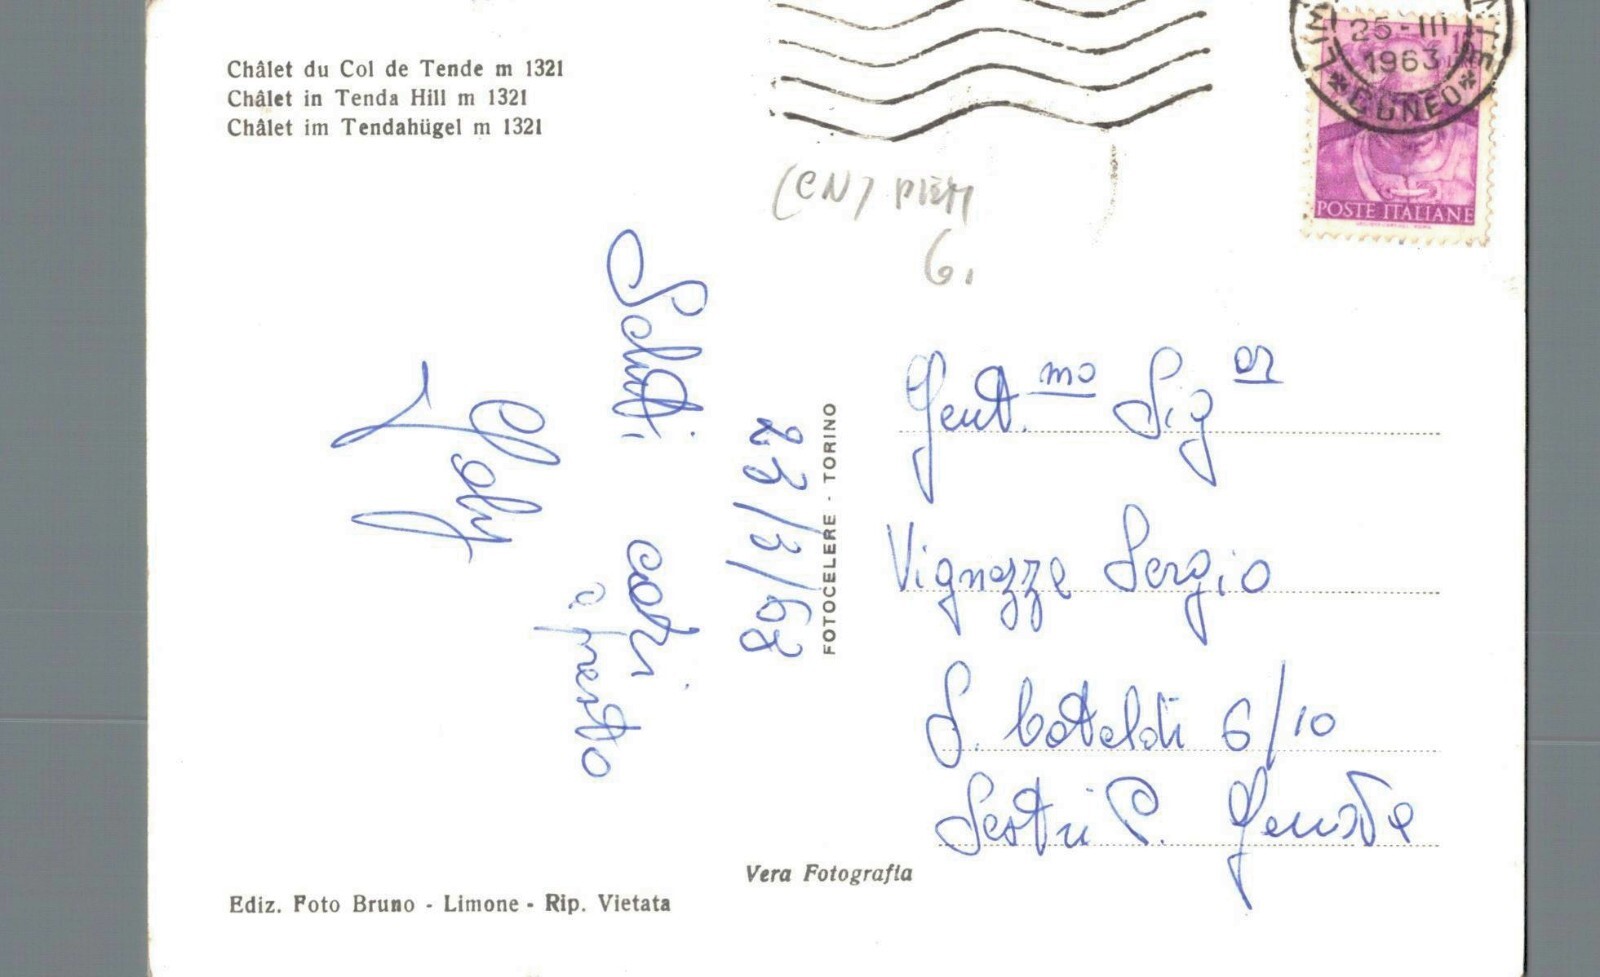 Châlet du Col de Tende m 1321
Châlet in Tenda Hill m 1321
Châlet im Tendahügel m 1321
25-III
1963
CUNEO
POSTE ITALIANE
(CN) PIEM
6.
Saluti cari
a presto
23/3/63
FOTOCELERE - TORINO
Gent.mo Sig or
Vignezze Sergio
6/10
Sestri P. Genova
Vera Fotografia
Ediz. Foto Bruno - Limone - Rip. Vietata